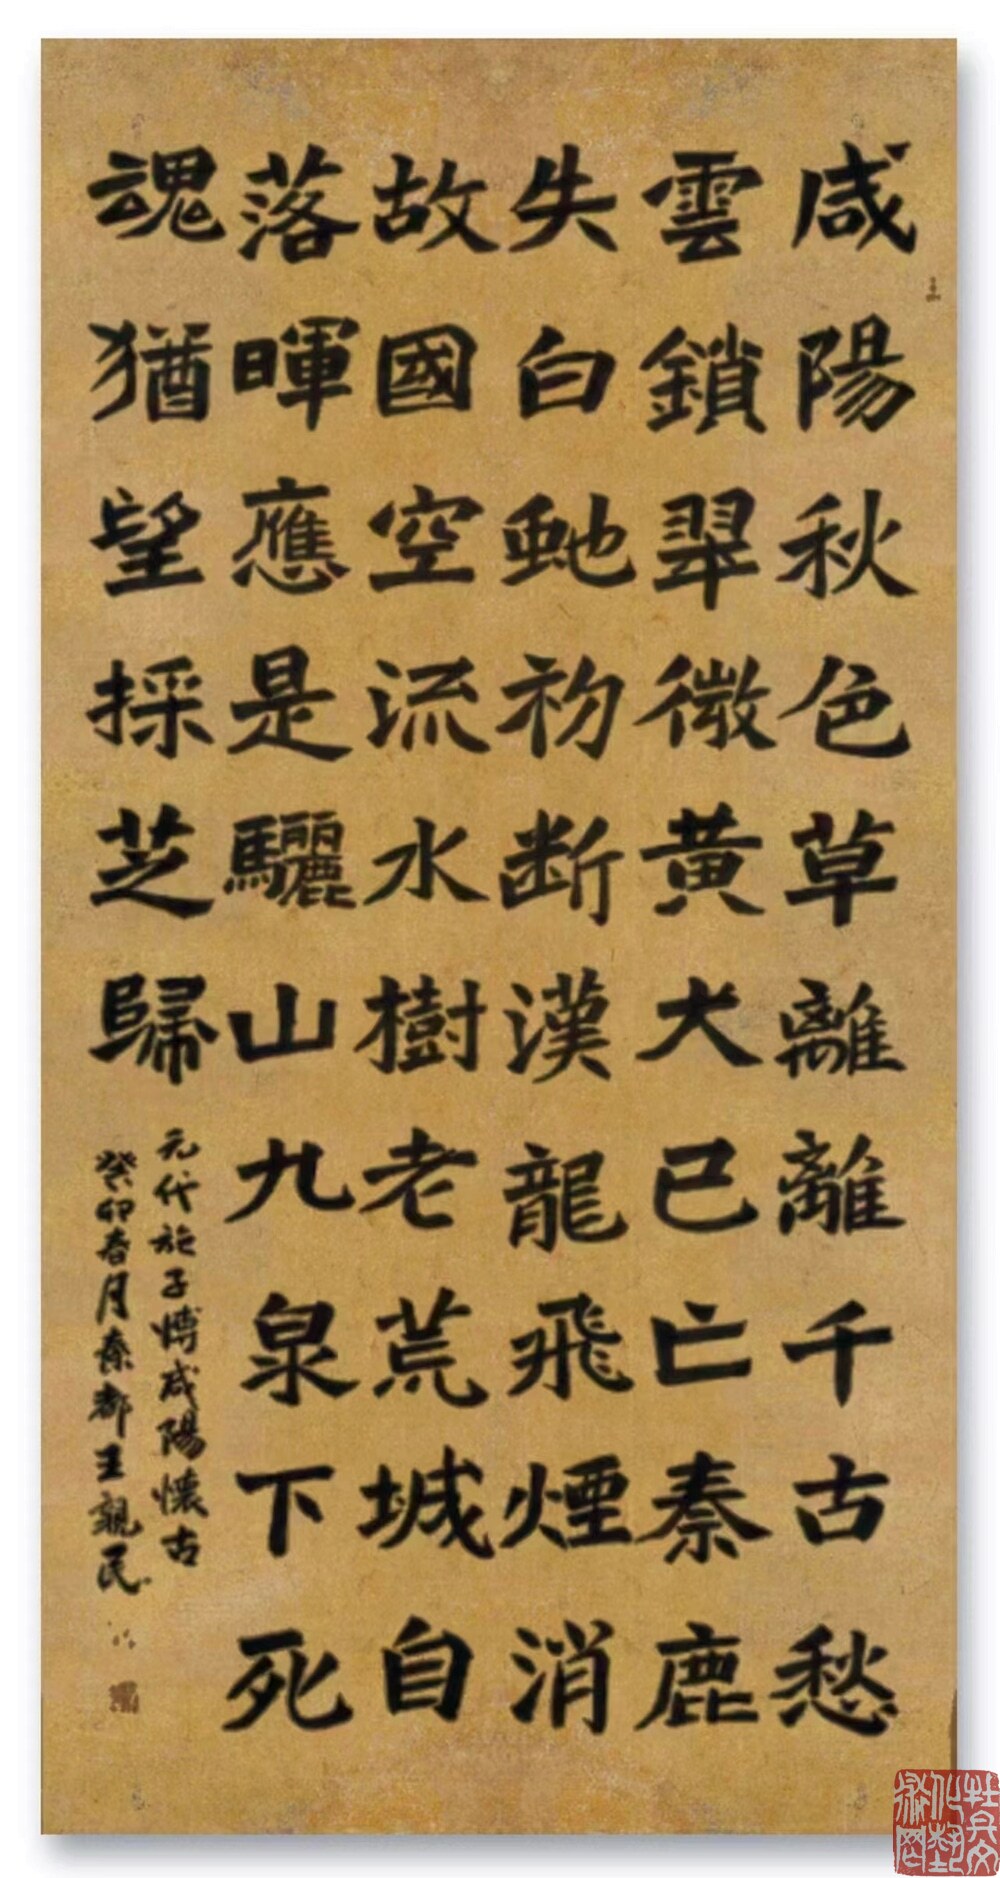 咸陽秋色草離離千古愁
雲鎖翠微黄犬已亡秦鹿
失白虵初断漢龍飛煙消
故國空流水樹老荒城自
落暉應是驪山九泉下死
魂猶望採芝歸
元代施子博咸陽懷古
癸卯春月秦都王親民